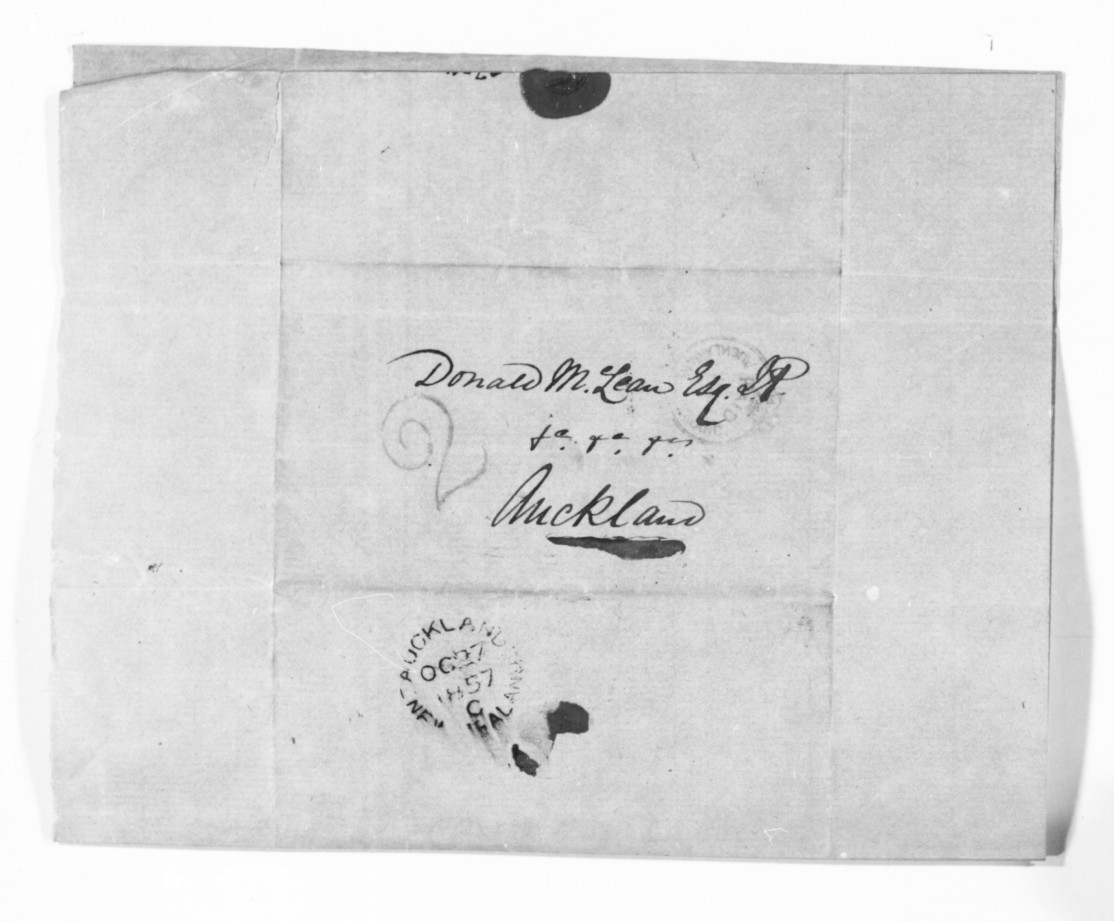 Donald McLean Esq. J.P.
&c. &c. &c.
Auckland
2
AUCKLAND
OC 27
1857
C
NEW ZEALAND